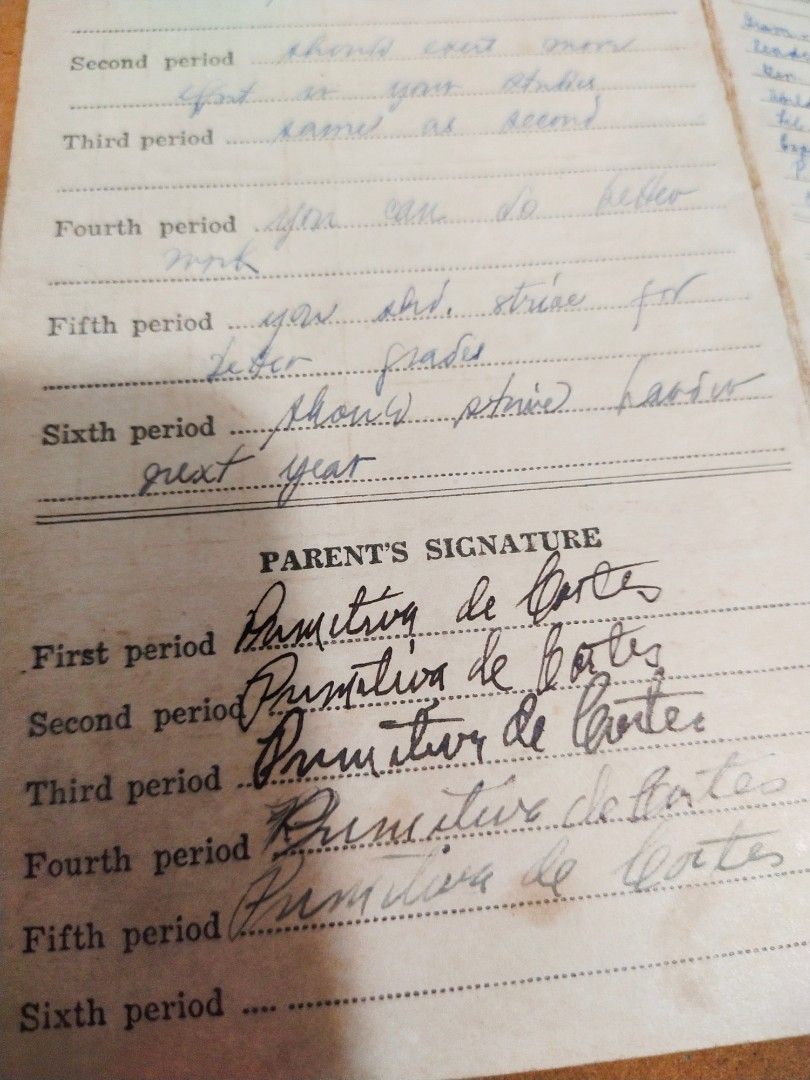 Second period should exert more
effort in your studies
Third period same as second
Fourth period you can do better
work
Fifth period you shd. strive for
better grades
Sixth period should strive harder
next year
PARENT'S SIGNATURE
First period Primitiva de Cortes
Second period Primitiva de Cortes
Third period Primitiva de Cortes
Fourth period Primitiva de Cortes
Fifth period Primitiva de Cortes
Sixth period